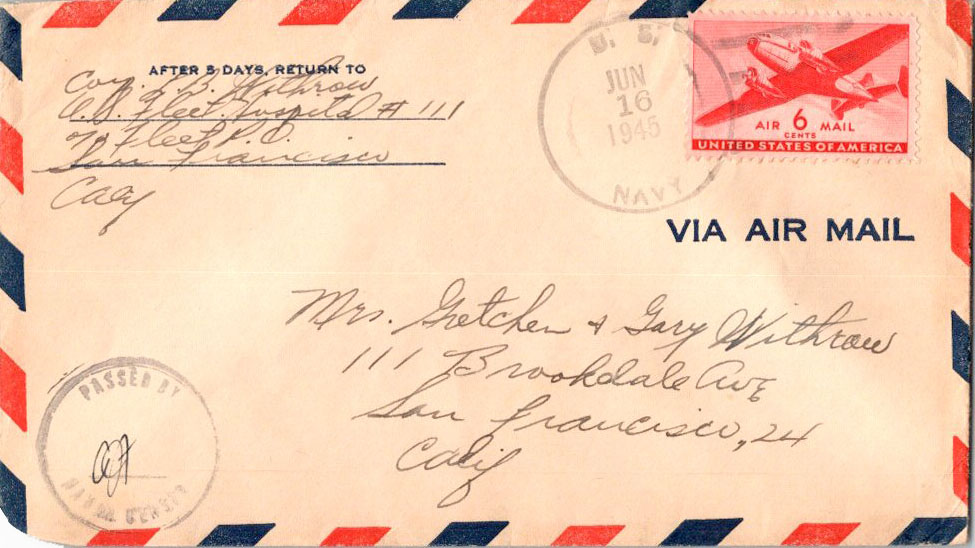 AFTER 5 DAYS, RETURN TO
Withrow
U.S. Fleet Hospital # 111
% Fleet P.O.
San Francisco
Calif
U. S.
JUN
16
1945
NAVY
AIR 6 MAIL
CENTS
UNITED STATES OF AMERICA
VIA AIR MAIL
Mrs. Gretchen & Gary Withrow
111 Brookdale Ave
San Francisco, 24
Calif
PASSED BY
NAVAL CENSOR